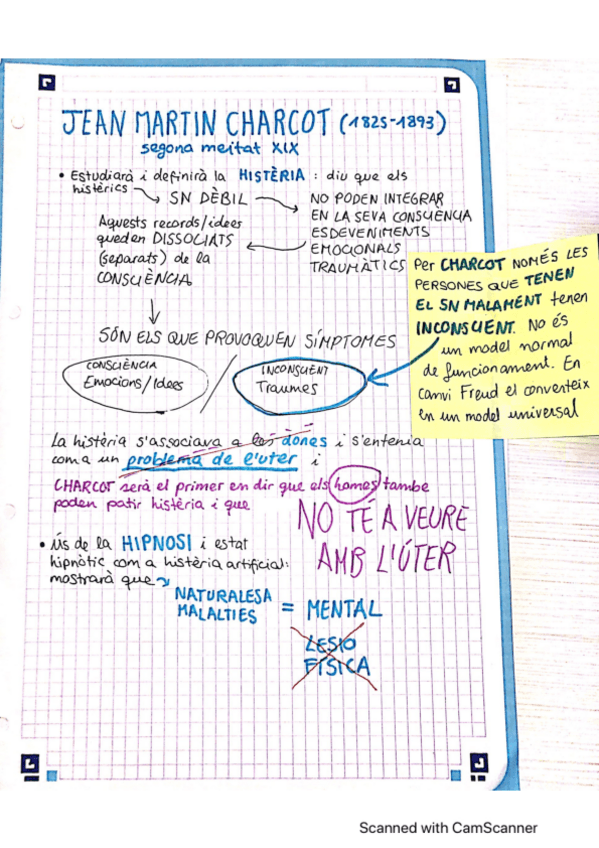 JEAN MARTIN CHARCOT (1825-1893)
segona meitat XIX
• Estudiarà i definirà la HISTÈRIA : diu que els
histèrics → SN DÈBIL →
NO PODEN INTEGRAR
EN LA SEVA CONSCIÈNCIA
ESDEVENIMENTS
EMOCIONALS
TRAUMÀTICS
Aquests records/idees
queden DISSOCIATS
(separats) de la
CONSCIÈNCIA
SÓN ELS QUE PROVOQUEN SÍMPTOMES
CONSCIÈNCIA
Emocions/Idees
/
INCONSCIENT
Traumes
Per CHARCOT NOMÉS LES
PERSONES QUE TENEN
EL SN MALAMENT tenen
INCONSCIENT. No és
un model normal
de funcionament. En
canvi Freud el converteix
en un model universal
La histèria s'associava a les dones i s'entenia
com a un problema de l'uter i
CHARCOT serà el primer en dir que els homes també
poden patir histèria i que
NO TÉ A VEURE
AMB L'ÚTER
• Ús de la HIPNOSI i estat
hipnòtic com a histèria artificial:
mostrarà que
NATURALESA
MALALTIES = MENTAL
LESIO
FÍSICA
Scanned with CamScanner